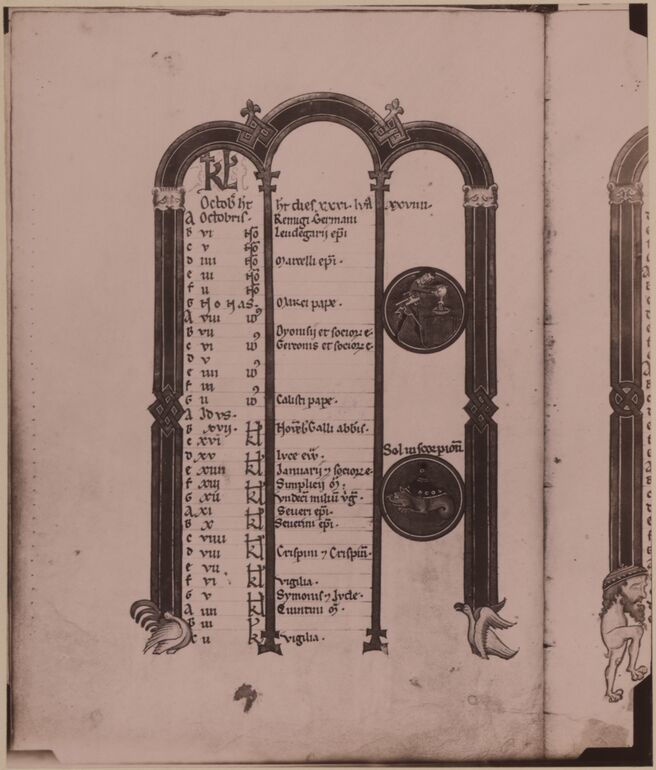 KL
Octob ht ht dies xxxi. lva xxviiii
A Octobris. Remigi Germani
b vi No leudegarij epi
c v No
d iiii No Marcelli epi.
e iii No
f ii No
G NONAS. Marci pape.
A viii id
b vii id Dyonisij et socior
c vi id Gereonis et socior
d v id
e iiii id
f iii id
G ii id Calisti pape.
A Idvs.
b xvij. kl Galli abbis.
c xvi kl
d xv kl Lvce ew.
e xiiii kl Januarij socior
f xiii kl Simplicij
G xii kl vndeci miliu vg.
A xi kl Seueri epi.
b x kl Seuerini epi.
c viiii kl
d viii kl Crispini 7 Crispin.
e vii. kl
f vi kl vigilia.
G v kl Symonis 7 Ivde.
A iiii kl Quintini
b iii kl
c ii kl vigilia.
Sol in scorpion